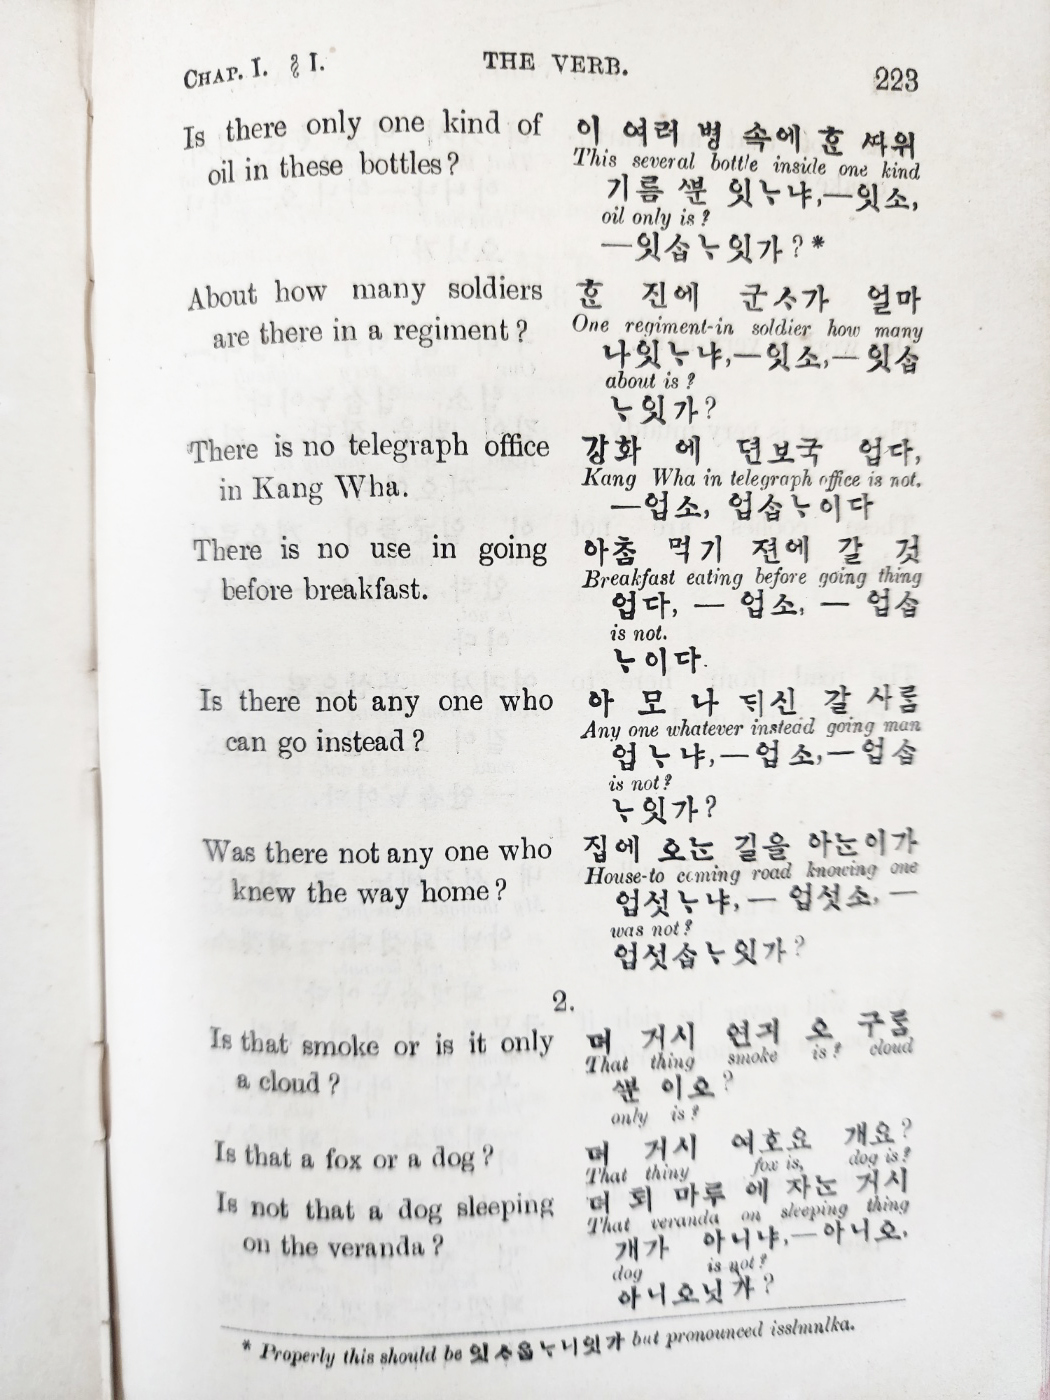 CHAP. I. § I. THE VERB. 223
Is there only one kind of 이 여러 병 속에 ᄒᆞᆫ ᄶᅡ위
oil in these bottles? This several bottle inside one kind
기름 ᄲᅮᆫ 잇ᄂᆞ냐,—잇소,
oil only is?
—잇ᄉᆞᆸᄂᆞ잇가?*
About how many soldiers ᄒᆞᆫ 진에 군ᄉᆞ가 얼마
are there in a regiment? One regiment-in soldier how many
나잇ᄂᆞ냐,—잇소,—잇ᄉᆞᆸ
about is?
ᄂᆞ잇가?
There is no telegraph office 강화 에 뎐보국 업다,
in Kang Wha. Kang Wha in telegraph office is not.
—업소, 업ᄉᆞᆸᄂᆞ이다
There is no use in going 아ᄎᆞᆷ 먹기 젼에 갈 것
before breakfast. Breakfast eating before going thing
업다, — 업소, — 업ᄉᆞᆸ
is not.
ᄂᆞ이다.
Is there not any one who 아 모 나 ᄃᆡ신 갈 사ᄅᆞᆷ
can go instead? Any one whatever instead going man
업ᄂᆞ냐,—업소,—업ᄉᆞᆸ
is not?
ᄂᆞ잇가?
Was there not any one who 집에 오ᄂᆞᆫ 길을 아ᄂᆞᆫ이가
knew the way home? House-to coming road knowing one
업섯ᄂᆞ냐, — 업섯소, —
was not?
업섯ᄉᆞᆸᄂᆞ잇가?
2.
Is that smoke or is it only 뎌 거시 연긔 오 구룸
a cloud? That thing smoke is? cloud
ᄲᅮᆫ 이오?
only is?
Is that a fox or a dog? 뎌 거시 여호요 개요?
That thing fox is, dog is?
Is not that a dog sleeping 뎌 퇴 마루 에 자ᄂᆞᆫ 거시
on the veranda? That veranda on sleeping thing
개가 아니냐,—아니오,
dog is not?
아니오닛가?
* Properly this should be 잇ᄉᆞ옵ᄂᆞ니잇가 but pronounced isslmnlka.